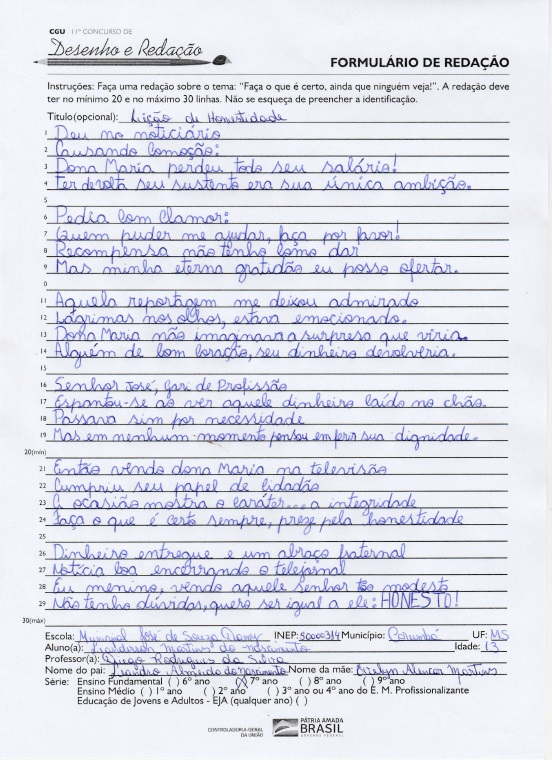 CGU 11º CONCURSO DE
Desenho e Redação
FORMULÁRIO DE REDAÇÃO
Instruções: Faça uma redação sobre o tema: "Faça o que é certo, ainda que ninguém veja!". A redação deve
ter no mínimo 20 e no máximo 30 linhas. Não se esqueça de preencher a identificação.
Título(opcional): Lição de Honestidade
1 Deu no noticiário
2 Causando comoção:
3 Dona Maria perdeu todo seu salário!
4 Ter devolta seu sustento era sua única ambição.
5
6 Pedia com clamor:
7 Quem puder me ajudar, faça por favor!
8 Recompensa não tenho como dar
9 Mas minha eterna gratidão eu posso ofertar.
0
11 Aquela reportagem me deixou admirado
12 Lágrimas nos olhos, estava emocionado.
13 Dona Maria não imaginava a surpresa que viria.
14 Alguém de bom coração, seu dinheiro devolveria.
15
16 Senhor José, gari de Profissão
17 Espantou-se ao ver aquele dinheiro caído no chão.
18 Passava sim por necessidade
19 Mas em nenhum momento pensou em ferir sua dignidade.
20(mín)
21 Então vendo dona Maria na televisão
22 Cumpriu seu papel de cidadão
23 A ocasião mostra o caráter... a integridade
24 Faça o que é certo sempre, preze pela honestidade
25
26 Dinheiro entregue e um abraço fraternal
27 Notícia boa encerrando o telejornal
28 Eu menino, vendo aquele senhor tão modesto
29 Não tenho dúvidas, quero ser igual a ele: HONESTO!
30(máx)
Escola: Municipal José de Souza Damy INEP: 50000314 Município: Corumbá UF: MS
Aluno(a): Martins do nascimento Idade: 13
Professor(a): Diego Rodrigues da Silva
Nome do pai: Leandro Almindo do Nascimento Nome da mãe: Evelyn Alencar Martins
Série: Ensino Fundamental ( ) 6º ano (X) 7º ano ( ) 8º ano ( ) 9º ano
Ensino Médio ( ) 1º ano ( ) 2º ano ( ) 3º ano ou 4º ano do E. M. Profissionalizante
Educação de Jovens e Adultos - EJA (qualquer ano) ( )
CONTROLADORIA-GERAL
DA UNIÃO
PÁTRIA AMADA
BRASIL
GOVERNO FEDERAL